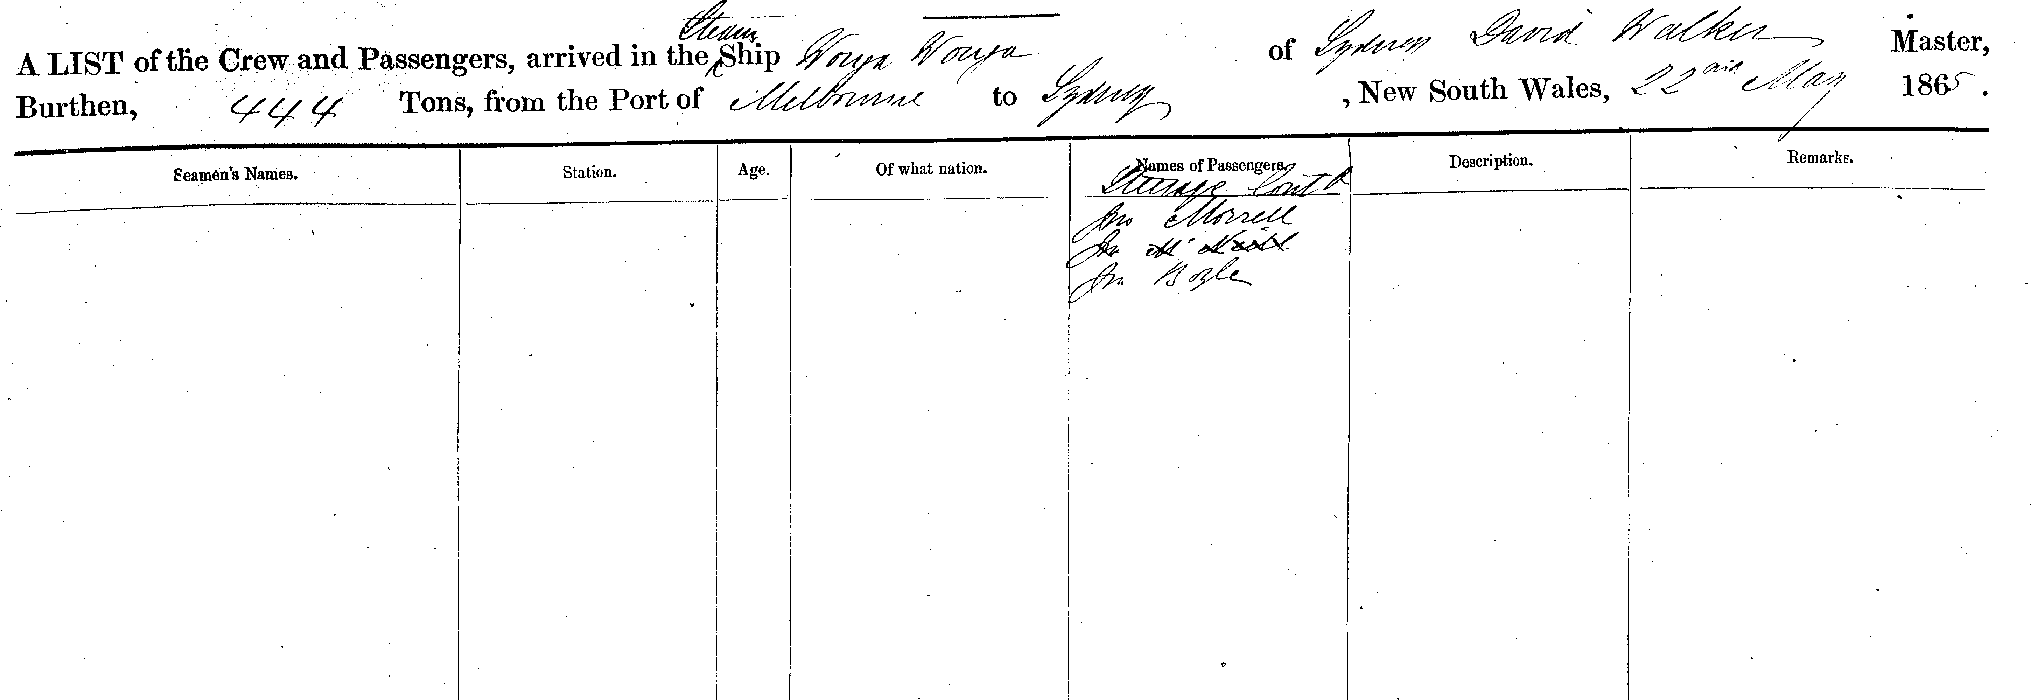 Steam
A LIST of the Crew and Passengers, arrived in the Ship Wonga Wonga of Sydney David Walker Master,
Burthen, 444 Tons, from the Port of Melbourne to Sydney, New South Wales, 22nd May 1865.
Seamen's Names. Station. Age. Of what nation. Names of Passengers. Description. Remarks.
Steerage Contd
Jno Morrell
Jno Mc Neill
Jno Boyle